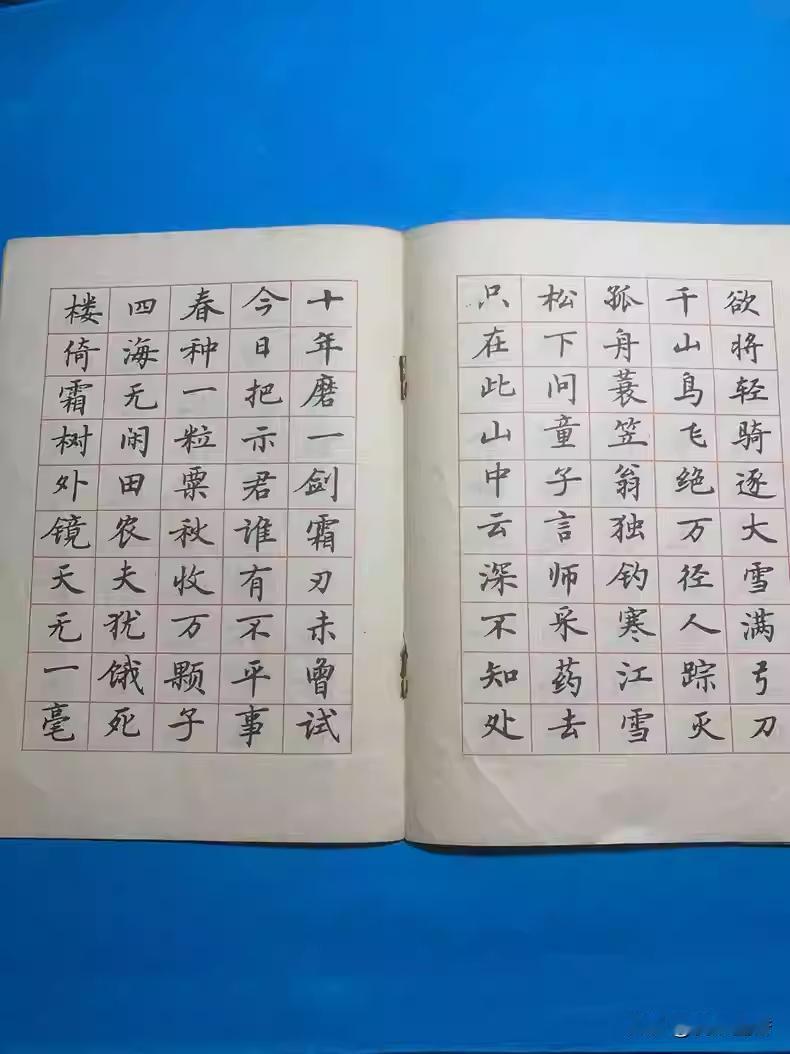 欲将轻骑逐大雪满弓刀
千山鸟飞绝万径人踪灭
孤舟蓑笠翁独钓寒江雪
松下问童子言师采药去
只在此山中云深不知处
十年磨一剑霜刃未曾试
今日把示君谁有不平事
春种一粒粟秋收万颗子
四海无闲田农夫犹饿死
楼倚霜树外镜天无一毫